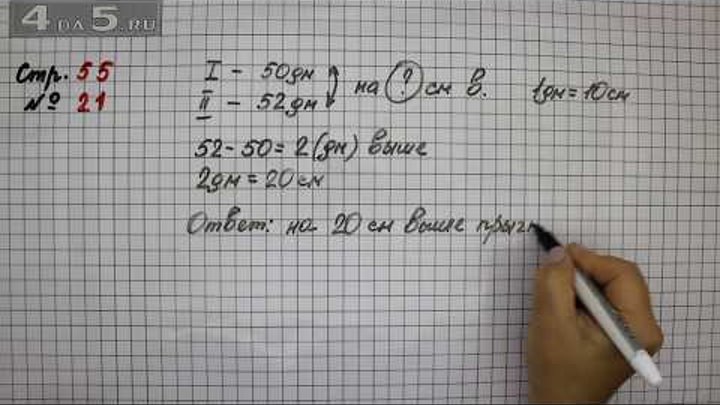 4 DA 5.RU
Стр. 55
№ 21
I – 50дм
II – 52дм
на ? см в.
1дм = 10см
52 - 50 = 2 (дм) выше
2дм = 20 см
Ответ: на 20 см выше прыгн